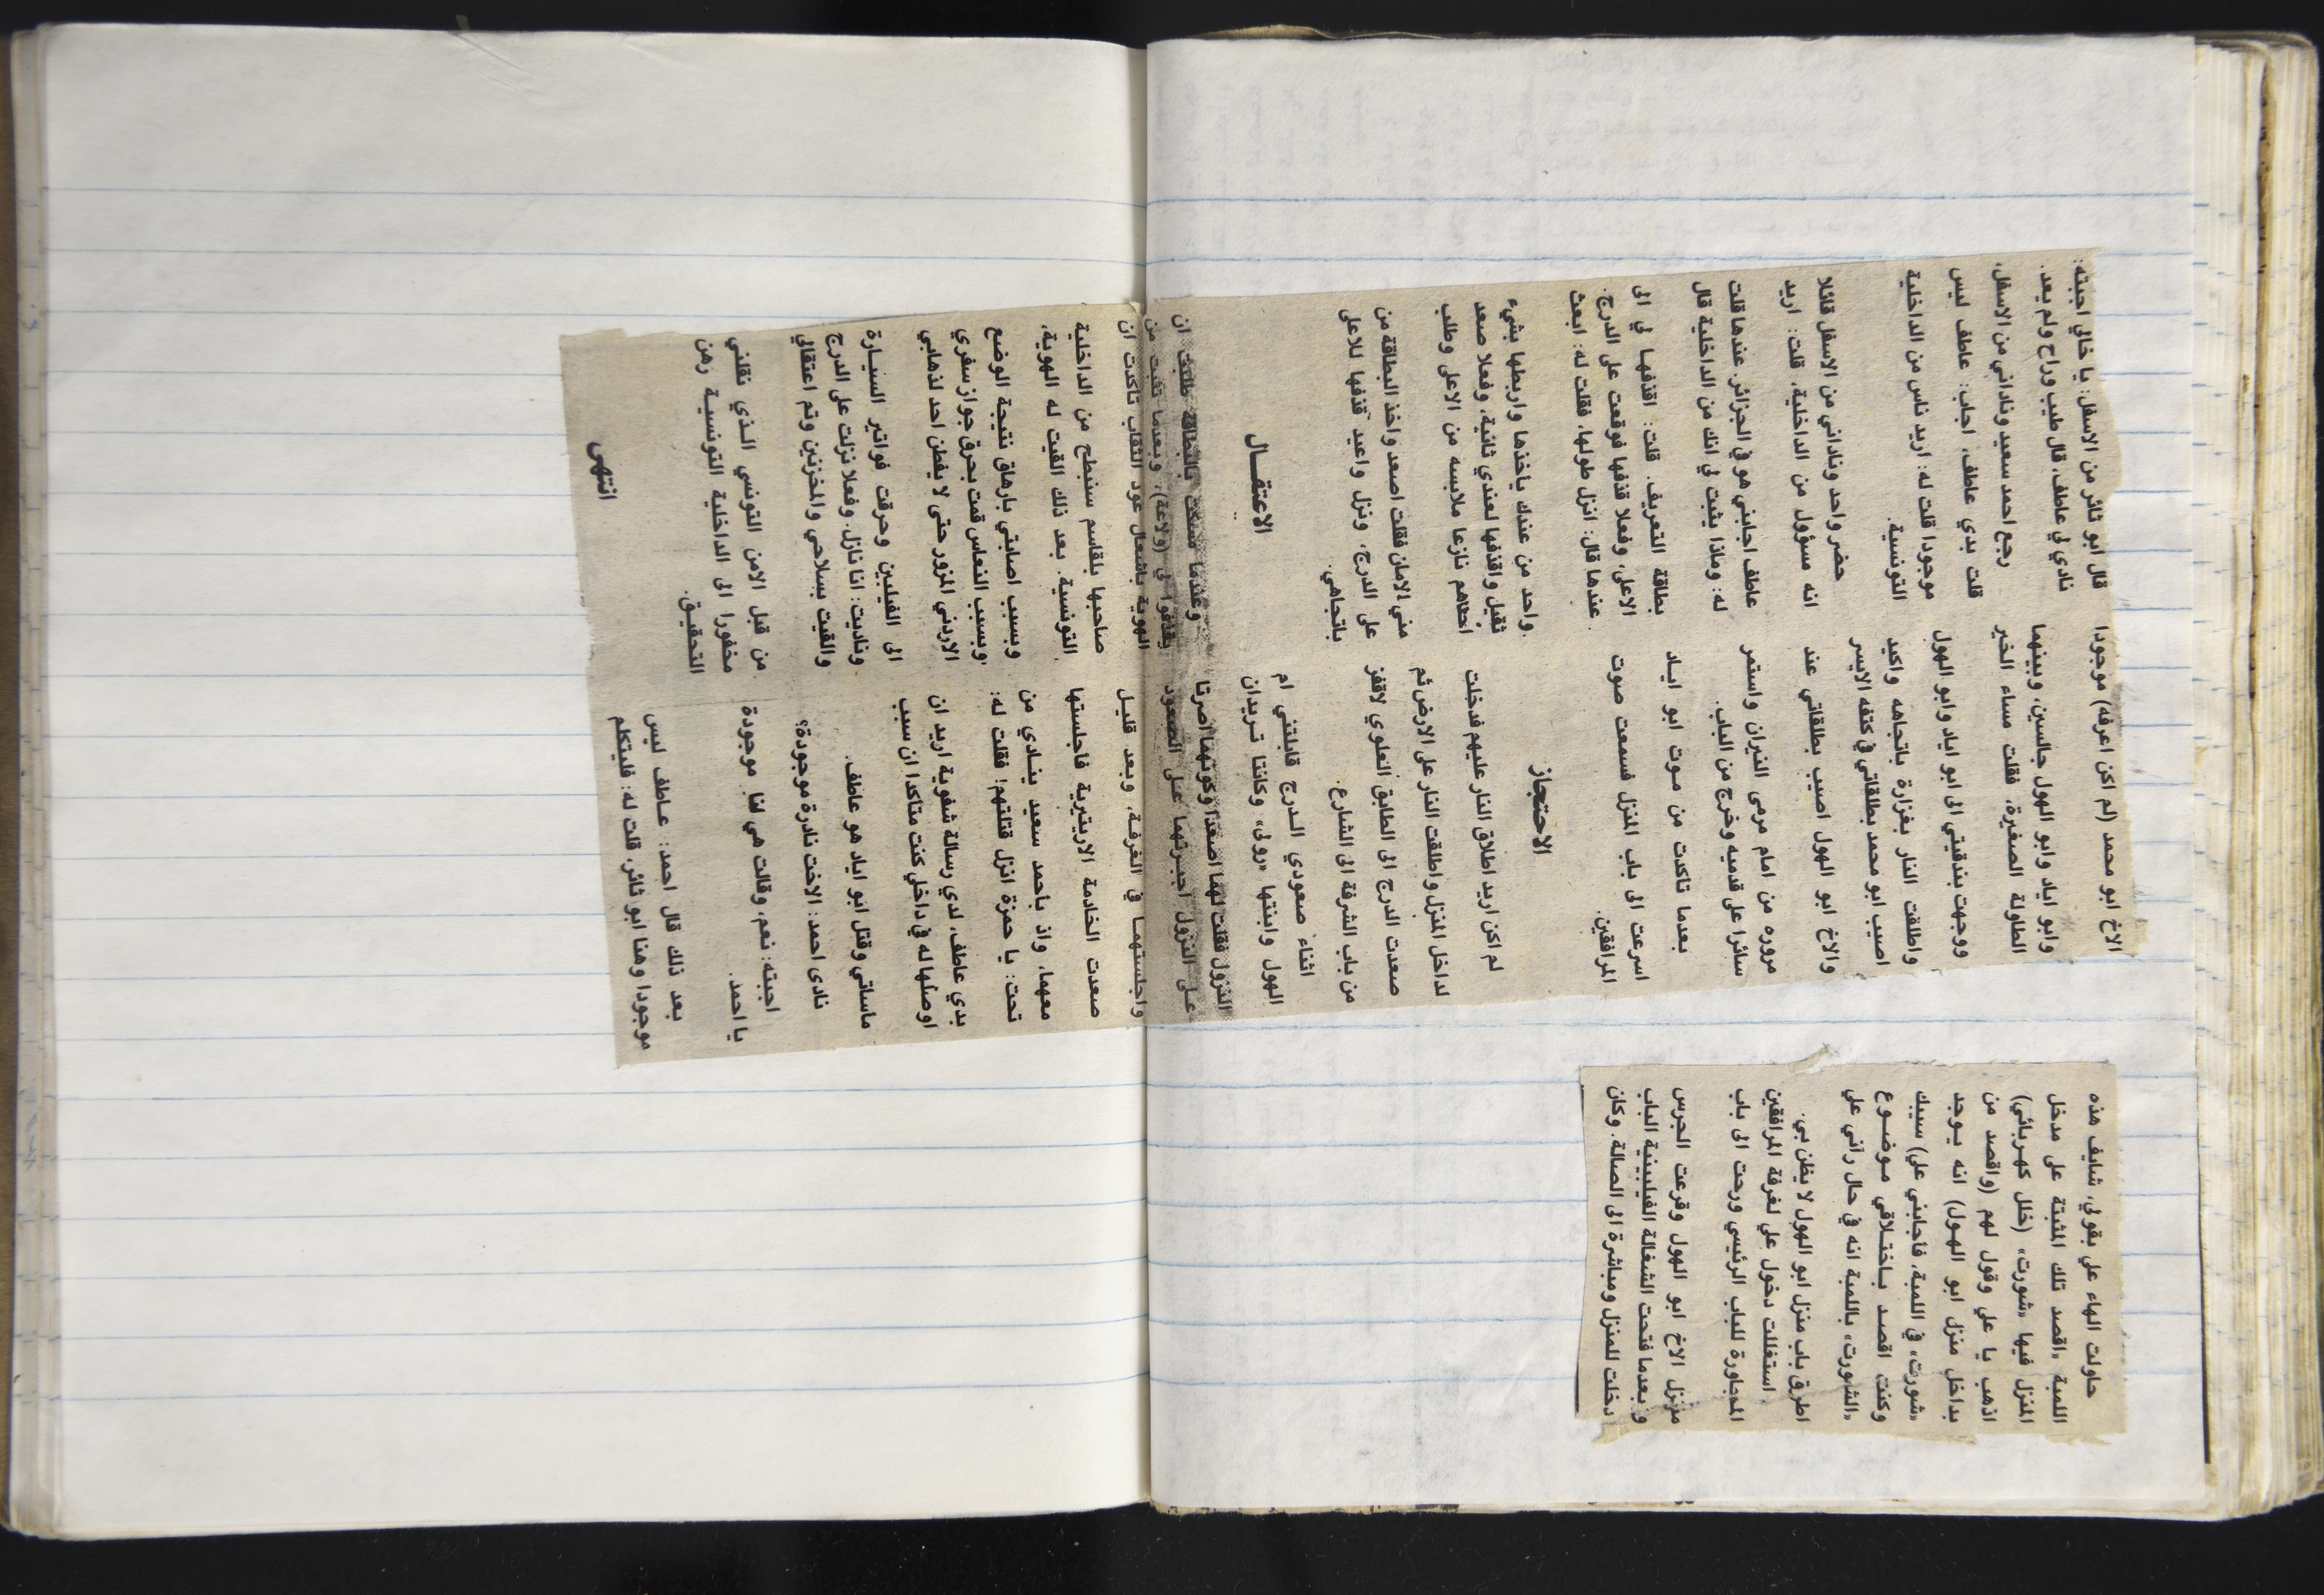 حاولت الهاء علي بقولي، شايف هذه
اللمبة «اقصد تلك المثبتة على مدخل
المنزل فيها «شورت» (خلل كهربائي)
اذهب يا علي وقول لهم (واقصد من
بداخل منزل ابو الهول) انه يوجد
«شورت» في اللمبة، فاجابني علي) سيبك
وكنت اقصد باختلاقي موضوع
«الشورت» باللمبة انه في حال رآني علي
اطرق باب منزل ابو الهول لا يظن بي.
استغللت دخول علي لغرفة المرافقين
المجاورة للباب الرئيسي ورحت الى باب
منزل الاخ ابو الهول وقرعت الجرس
وبعدما فتحت الشغالة الفيليبينية الباب
دخلت للمنزل ومباشرة الى الصالة. وكان
الاخ ابو محمد (لم اكن اعرفه) موجودا
وابو اياد وابو الهول جالسين، وبينهما
الطاولة الصغيرة، فقلت مساء الخير
ووجهت بندقيتي الى ابو اياد وابو الهول
واطلقت النار بغزارة باتجاهه واكيد
اصيب ابو محمد بطلقاتي في كتفه الايسر
والاخ ابو الهول اصيب بطلقاتي عند
مروره من امام مرمى النيران واستمر
سائرا على قدميه وخرج من الباب.
بعدما تاكدت من موت ابو اياد
اسرعت الى باب المنزل فسمعت صوت
المرافقين.
الاحتجاز
لم اكن اريد اطلاق النار عليهم فدخلت
لداخل المنزل واطلقت النار على الارض ثم
صعدت الدرج الى الطابق العلوي لاقفز
من باب الشرفة الى الشارع.
اثناء صعودي الدرج قابلتني ام
الهول وابنتها «رولى» وكانتا تريدان
النزول فقلت لهما اصعدا وكونهما اصرتا
على النزول اجبرتهما على الصعود
واجلستهما في الغرفة، وبعد قليل
صعدت الخادمة الاريتيرية فاجلستها
معهما، واذ باحمد سعيد ينادي من
تحت: يا حمزة انزل قتلتهم! فقلت له:
بدي عاطف، لدي رسالة شفوية اريد ان
اوصلها له في داخلي كنت متاكدا ان سبب
ماساتي وقتل ابو اياد هو عاطف.
نادى احمد: الاخت نادرة موجودة؟
اجبته: نعم، وقالت هي لنا موجودة
يا احمد.
بعد ذلك قال احمد: عاطف ليس
موجودا وهنا ابو ثائر، قلت له: فليتكلم
قال ابو ثائر من الاسفل: يا خالي اجبته:
نادي لي عاطف، قال طيب وراح ولم يعد.
رجع احمد سعيد وناداني من الاسفل،
قلت بدي عاطف، اجاب: عاطف ليس
موجودا قلت له: اريد ناس من الداخلية
التونسية.
حضر واحد وناداني من الاسفل قائلا
انه مسؤول من الداخلية، قلت: اريد
عاطف اجابني هو في الجزائر عندها قلت
له: وماذا يثبت لي انك من الداخلية قال
بطاقة التعريف. قلت: اقذفها لي الى
الاعلى، وفعلا قذفها فوقعت على الدرج.
عندها قال: انزل طولها، فقلت له: ابعث
واحد من عندك ياخذها واربطها بشيء
ثقيل واقذفها لعندي ثانية، وفعلا صعد
احداهم نازعا ملابسه من الاعلى وطلب
مني الامان فقلت اصعد واخذ البطاقة من
على الدرج، ونزل واعيد قذفها للاعلى
باتجاهي.
الاعتقال
وعندما مسكت بالبطاقة طلبت ان
يقذفوا لي (ولاعة)، وبعدما تثبت من
الهوية باشعال عود الثقاب تاكدت ان
صاحبها بلقاسم سنبطح من الداخلية
التونسية. بعد ذلك القيت له الهوية،
وبسبب اصابتي بارهاق نتيجة الوضع
وبسبب النعاس قمت بحرق جواز سفري
الاردني المزور حتى لا يفطن احد لذهابي
الى الفيليبين وحرقت فواتير السيارة
وناديت: انا نازل. وفعلا نزلت على الدرج
والقيت بسلاحي والمخزنين وتم اعتقالي
من قبل الامن التونسي الذي نقلني
مخفورا الى الداخلية التونسية رهن
التحقيق.
انتهى